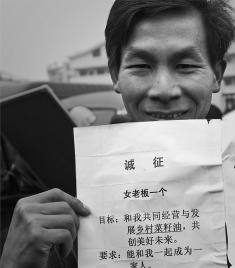 诚征
女老板一个
目标：和我共同经营与发
展乡村菜籽油，共
创美好未来。
要求：能和我一起成为一
家人。